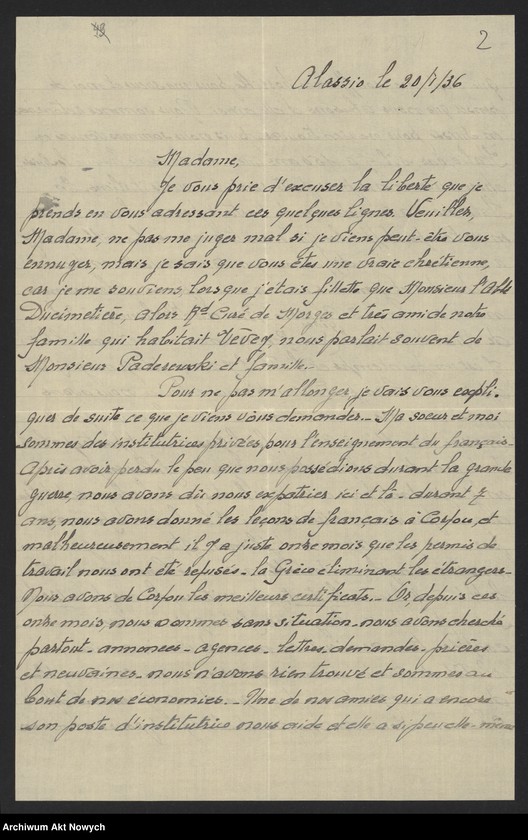 2
Alassio le 20/1/36
Madame,
Je vous prie d'excuser la liberté que je
prends en vous adressant ces quelques lignes. Veuillez,
Madame, ne pas me juger mal si je viens peut-être vous
ennuyer, mais je sais que vous êtes une vraie chrétienne,
car je me souviens, lorsque j'étais fillette que Monsieur l'Abbé
Ducimetière, alors Rd Curé de Morges et très ami de notre
famille qui habitait Vevey, nous parlait souvent de
Monsieur Paderewski et famille.-
Pour ne pas m'allonger je vais vous expli-
quer de suite ce que je viens vous demander.- Ma soeur et moi
sommes des institutrices privées pour l'enseignement du français-
Après avoir perdu le peu que nous possédions durant la grande
guerre, nous avons dû nous expatrier ici et là - durant 7
ans, nous avons donné les leçons de français à Corfou, et
malheureusement il y a juste onze mois que les permis de
travail nous ont été refusés - la Grèce éliminant les étrangers-
Nous avons de Corfou les meilleurs certificats.- Or, depuis ces
onze mois, nous sommes sans situation - nous avons cherché
partout - annonces - agences - lettres - demandes - prières
et neuvaines - nous n'avons rien trouvé et sommes au
bout de nos économies. - Une de nos amies qui a encore
son poste d'institutrice nous aide et elle a si peu elle-même
Archiwum Akt Nowych